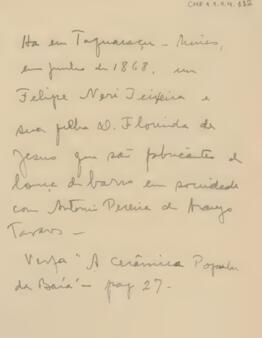 Ha em Taquarassu - Minas,
em junho de 1868, um
Felipe Neri Teixeira e
sua filha D. Florinda de
Jesus que são fabricantes de
louça de barro em sociedade
com Antonio Pereira de Araujo
Tavares -
Veja "A Cerâmica Popular
da Baía" - pag 27.